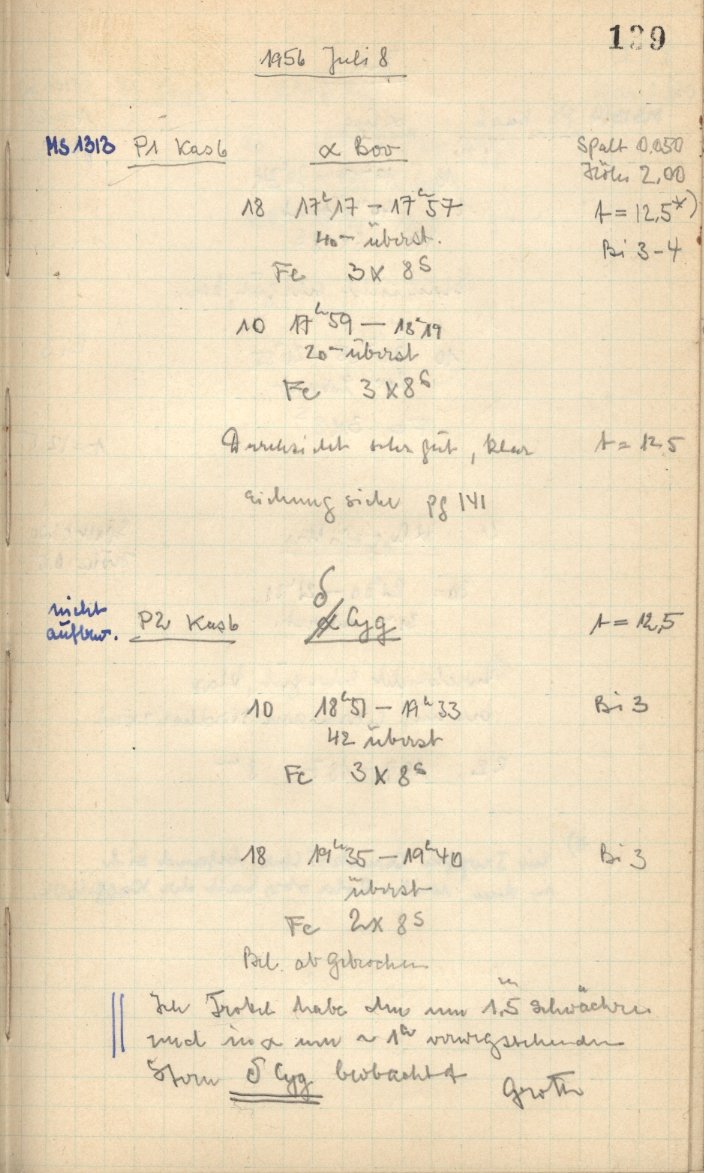 139
1956 Juli 8
MS 1313 P1 Kas6 α Boo Spalt 0.050
Höhe 2,00
18 17h17 – 17h57 t = 12,5 *)
40m überst. Bi 3-4
Fe 3 x 8s
10 17h59 – 18h19
20m überst
Fe 3 x 8s
Durchsicht sehr gut, klar t = 12,5
Eichung siehe pg 141
δ
nicht
aufbew. P2 Kas6 α Cyg t = 12,5
10 18h51 – 19h33 Bi 3
42 überst
Fe 3 x 8s
18 19h35 – 19h40 Bi 3
überst
Fe 2 x 8s
Bel. abgebrochen
Ich Trottel habe den um 1,5m schwächeren
und in α um ~ 1h vorangehenden
Stern δ Cyg beobachtet
Groth